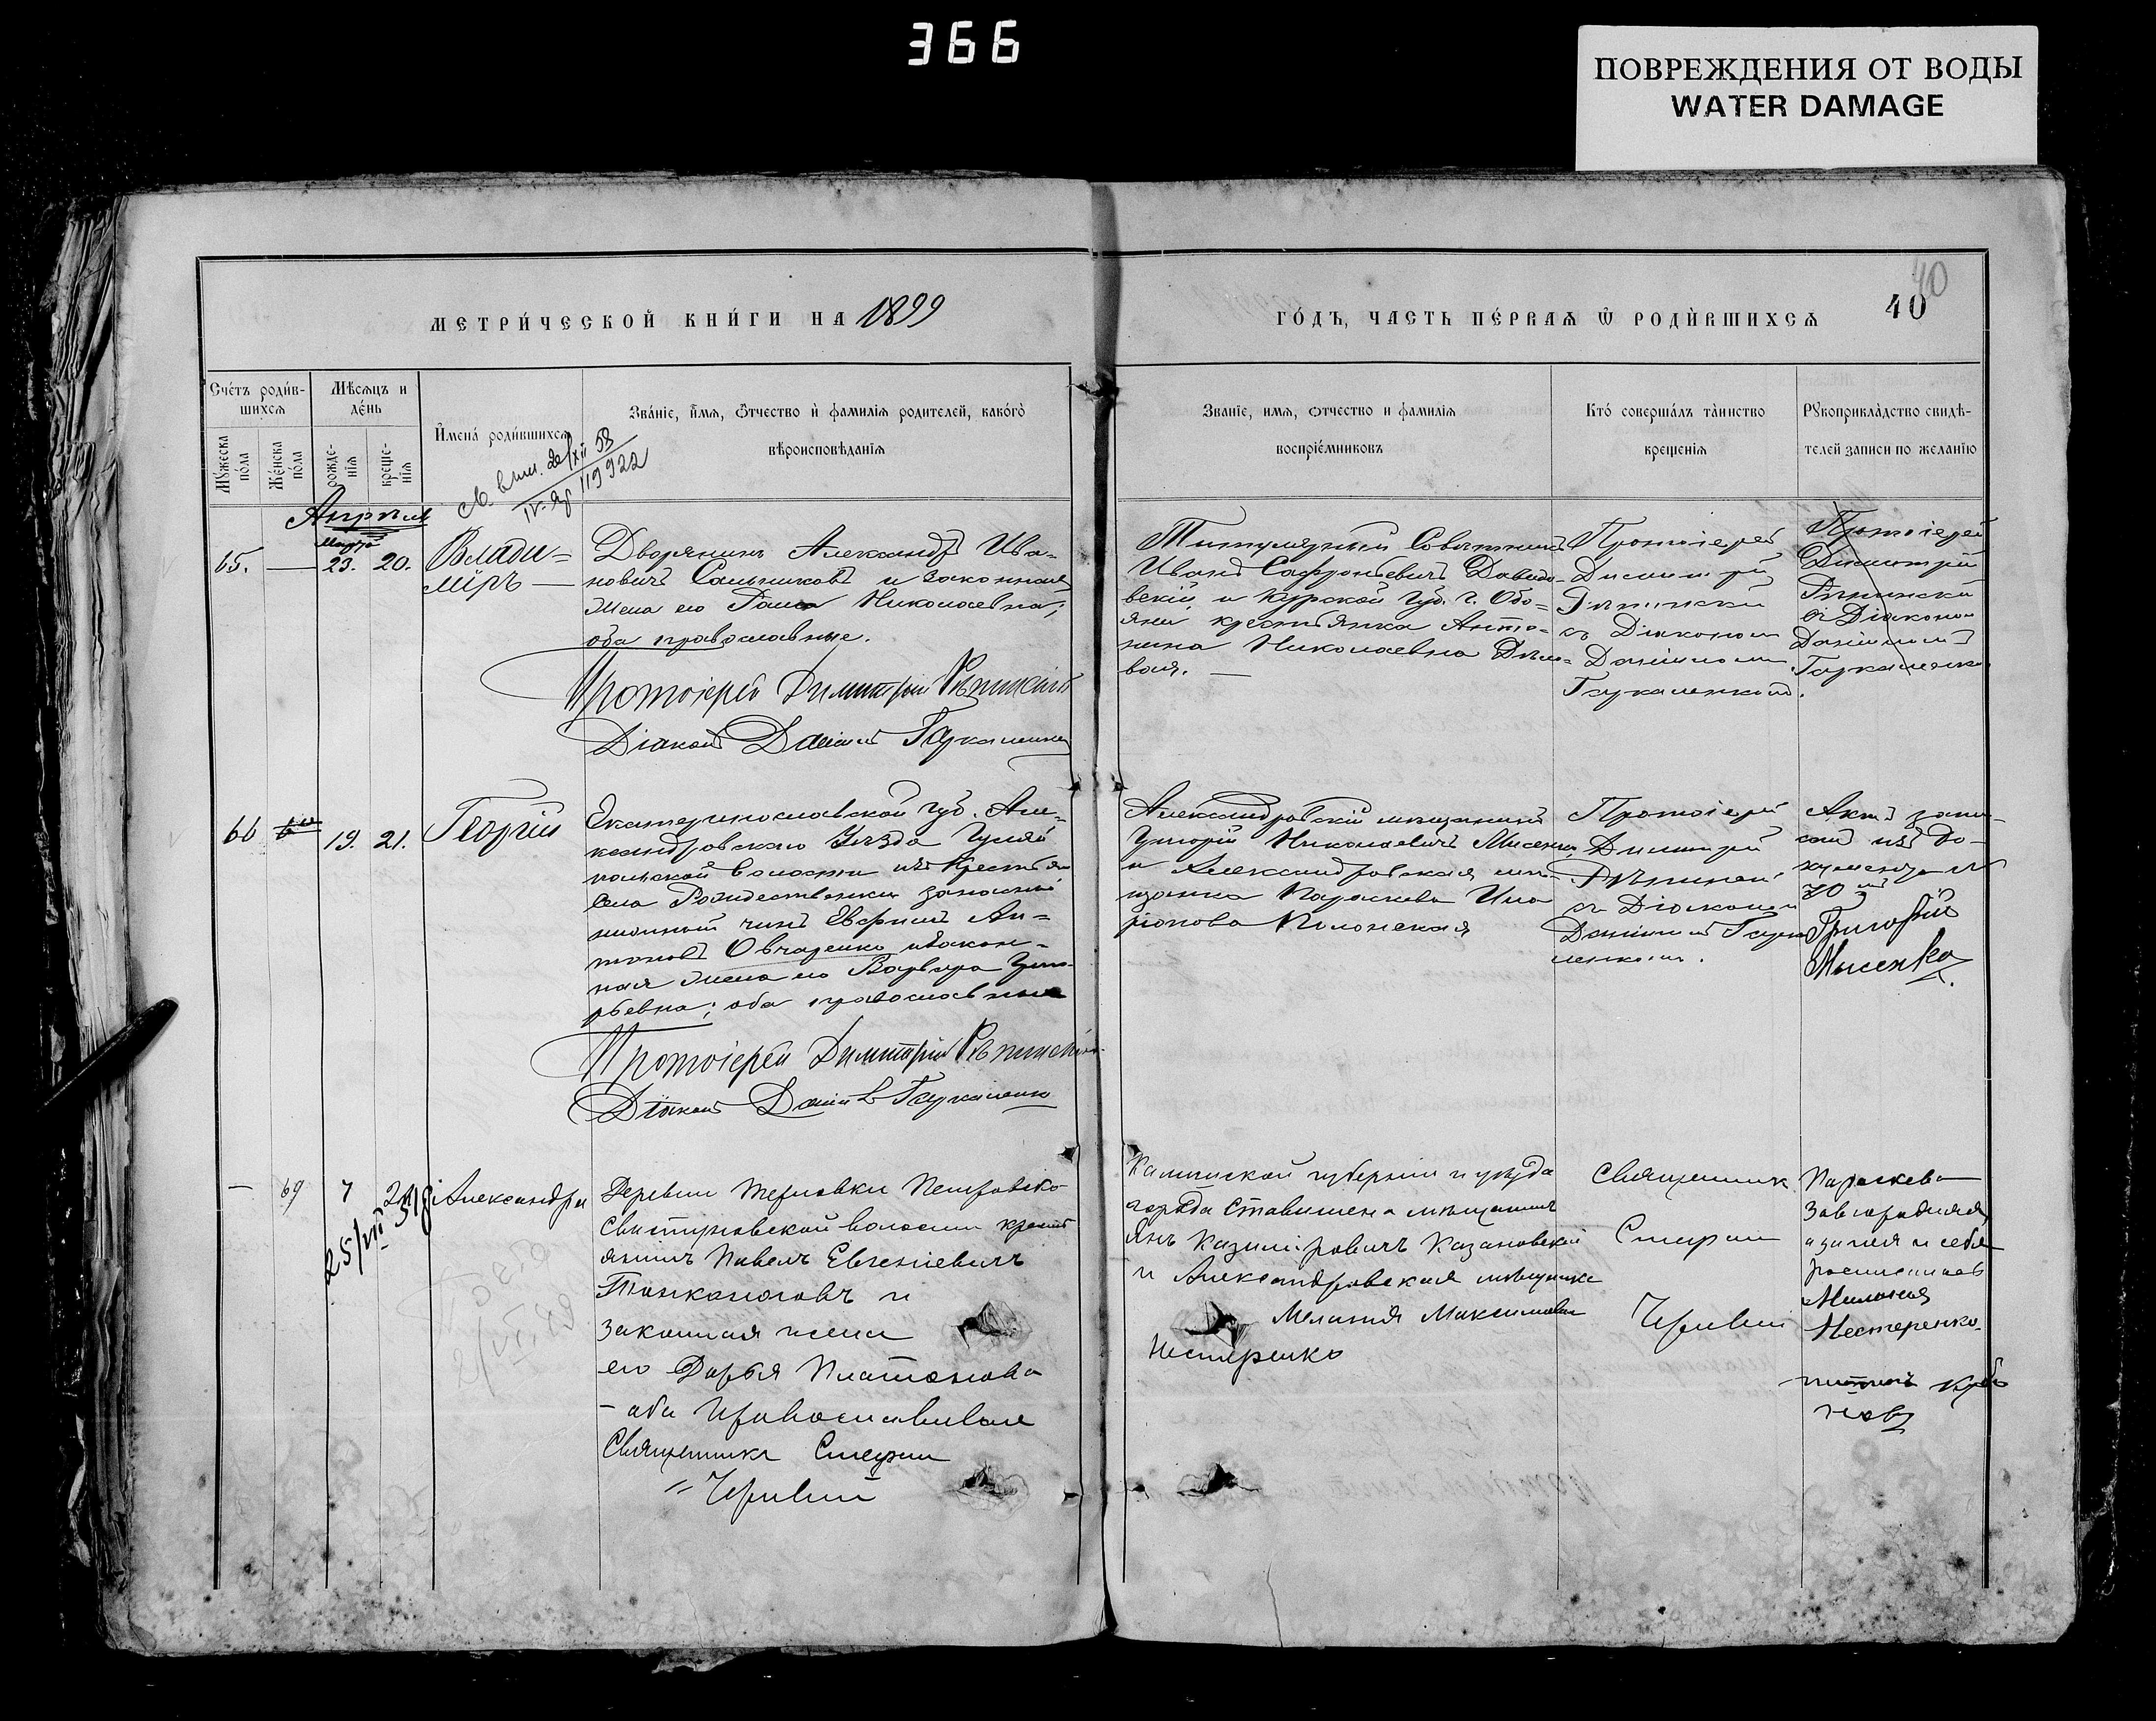 366
ПОВРЕЖДЕНИЯ ОТ ВОДЫ
WATER DAMAGE
МЕТРИ́ЧЕСКОЙ КНИ́ГИ НА 1899
ГО́ДЪ, ЧАСТЬ ПЕ́РВАѦ Ѿ РОДИ́ВШИХСѦ
40
40
Сче́тъ роди́в-
шихсѧ
Мѣсѧцъ и
де́нь
Мꙋжеска
по́ла
Же́нска
по́ла
рожде-
нїѧ
креще-
нїѧ
И҆мена́ роди́вшихсѧ
Зва́нїе, и҆́мѧ, ѻ҆́тчество и҆ фамилїѧ родителей, како́гѡ
вѣроисповѣданїѧ
Званїе, имѧ, ѻтчество и фамилїѧ
воспрїе́мниковъ
Кто́ соверша́лъ та́инство
крещенїѧ
Рꙋкоприкла́дство свидѣ-
телей записи по желанїю
Апрѣль
65.
—
Марта
23.
20.
Влади=
міръ —
Дворянинъ Александръ Ива-
новичъ Сальниковъ и законная
жена его Николаевна;
оба православные.
Протоіерей Димитрій Рѣпинскій
Діаконъ Даніилъ
Титулярный Совѣтникъ
Иванъ Сафроньевичъ Давидо-
вскій, и Курской Губ. г. Обо=
яни крестьянка Анто=
нина Николаевна
вая. —
Протоіерей
Димитрій
Рѣпинскій
съ Діакономъ
Даніиломъ
Протоіерей
Димитрій
Рѣпинскій
съ Діакономъ
Даніиломъ
66
19.
21.
Георгій
Екатеринославской губ. Але-
ксандровскаго Уѣзда Гуляй
польской волости изъ крестьянъ
села Рождественки запасный
чинъ Евфимій Ан=
тоновъ Овчаренко и закон-
ная жена его Варвара Григо-
рьевна; оба православные
Протоіерей Димитрій Рѣпинскій
Діаконъ Даніилъ
Александровскій мѣщанинъ
Григорій Николаевичъ Мисенко
и Александровская мѣ-
щанка Параскева Ила
ріонова Полонская
Протоіерей
Димитрій
Рѣпинскій
съ Діакономъ
Даніиломъ
Актъ запи-
санъ изъ До-
кумента №
70
Григорій
Мысенко
—
69
7
Александра
Деревни Терновки Петровско
Свистуновской волости кресть
янинъ Павелъ Евгеніевичъ
и
законная жена
его Дарья Платонова
- оба Православные
Священникъ Стефанъ
Калишской губерніи и уѣзда
города Ставишена мѣщанинъ
Янъ Казиміровичъ Казановскій
и Александровская мѣщанка
Меланія Максимова
Нестеренко
Священникъ
Стефанъ
Параскева
Завгородняя
а за нея и себя
росписалась
Меланія
Нестеренко